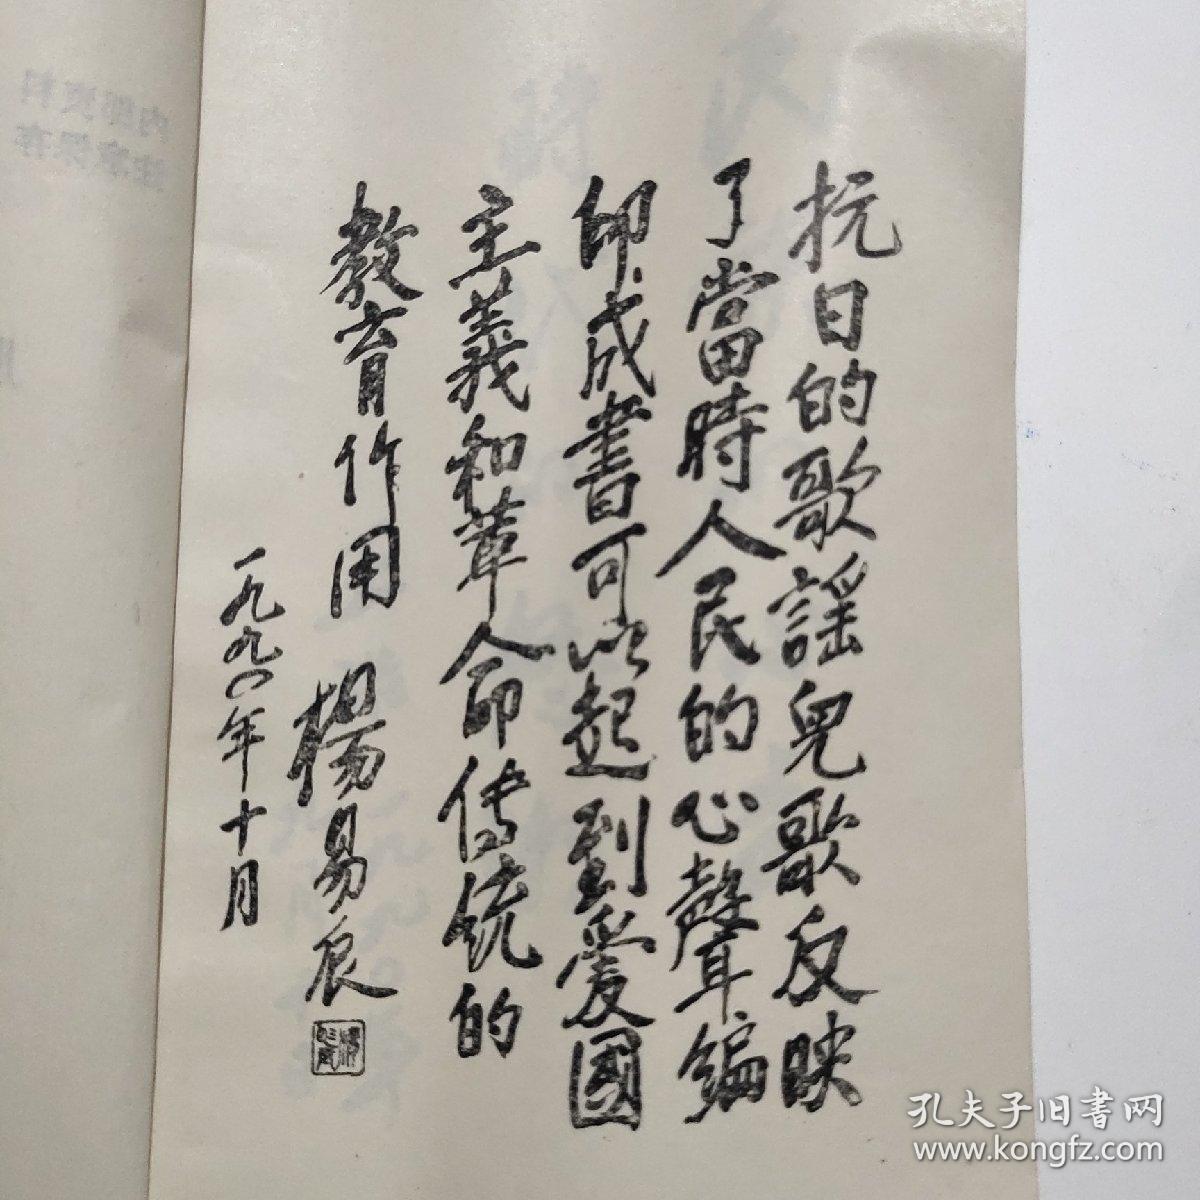 抗日的歌謡兒歌反映
了當時人民的心聲編
印成書可以起到爱國
主義和革命传统的
教育作用 楊易辰
一九九〇年十月
内部资料
注意保存
孔夫子旧書网
www.kongfz.com